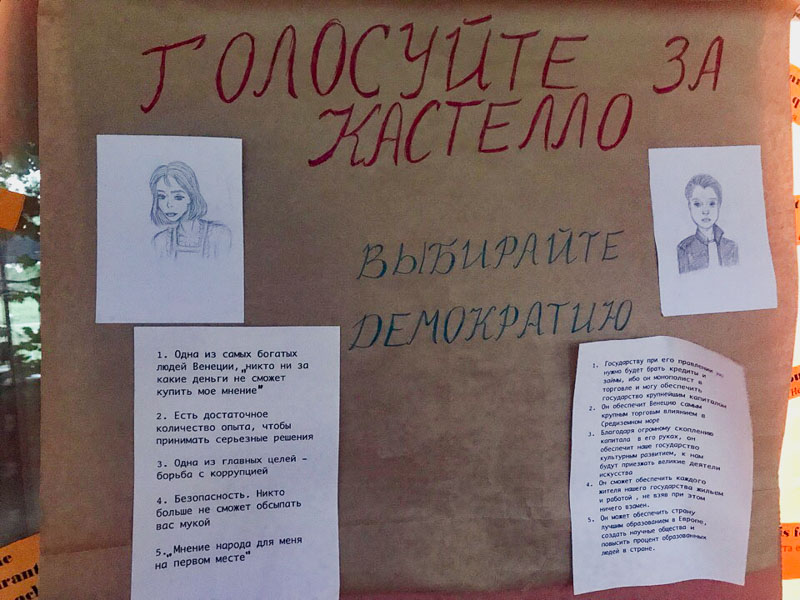 ГОЛОСУЙТЕ ЗА
КАСТЕЛЛО
ВЫБИРАЙТЕ
ДЕМОКРАТИЮ
1. Одна из самых богатых
людей Венеции, „никто ни за
какие деньги не сможет
купить мое мнение"
2. Есть достаточное
количество опыта, чтобы
принимать серьезные решения
3. Одна из главных целей –
борьба с коррупцией
4. Безопасность. Никто
больше не сможет обсыпать
вас мукой
5. „Мнение народа для меня
на первом месте"
1. Государству при его правлении не
нужно будет брать кредиты и
займы, ибо он монополист в
торговле и могу обеспечить
государство крупнейшим капиталом
2. Он обеспечит Венецию самым
крупным торговым влиянием в
Средиземном море
3. Благодаря огромному скоплению
капитала в его руках, он
обеспечит наше государство
культурным развитием, к нам
будут приезжать великие деятели
искусства
4. Он сможет обеспечить каждого
жителя нашего государства жильем
и работой , не взяв при этом
ничего взамен.
5. Он может обеспечить страну
лучшим образованием в Европе,
создать научные общества и
повысить процент образованных
людей в стране.